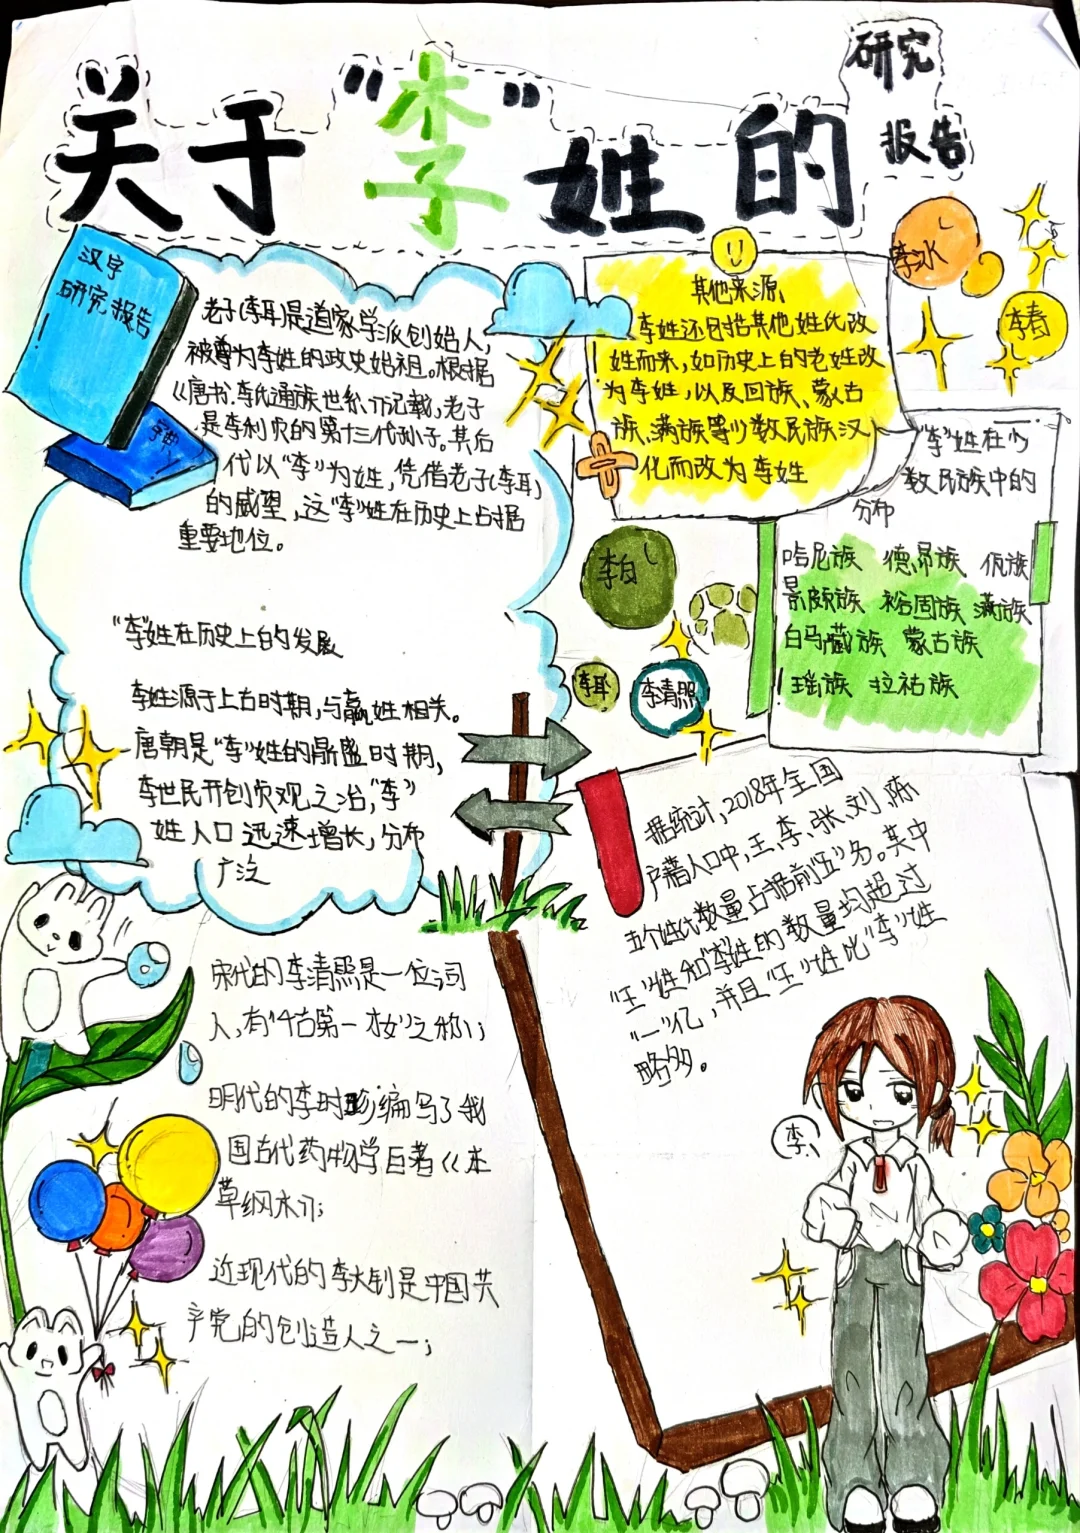 关于“李”姓的
研究
报告
汉字
研究报告
字典
老子(李耳)是道家学派创始人,
被尊为李姓的政史始祖。根据
《唐书.李氏通族世系》记载,老子
是李利贞的第十三代孙子。其后
代以“李”为姓,凭借老子(李耳)
的威望,这“李”姓在历史上占据
重要地位。
“李”姓在历史上的发展
李姓源于上古时期,与嬴姓相关。
唐朝是“李”姓的鼎盛时期,
李世民开创贞观之治,“李”
姓人口迅速增长,分布
广泛
其他来源
李姓还包括其他姓氏改
姓而来,如历史上的老姓改
为李姓,以及回族、蒙古
族、满族等少数民族汉
化而改为李姓
李冰
李春
“李”姓在少
数民族中的
分布
哈尼族 德昂族 佤族
景颇族 裕固族 满族
白马藏族 蒙古族
瑶族 拉祜族
李白
李耳
李清照
据统计,2018年全国
户籍人口中,王、李、张、刘、陈
五个姓氏数量占据前“五”名。其中
“王”姓和“李”姓的数量均超过
“一”亿,并且“王”姓比“李”姓
略多。
宋代的李清照是一位词
人,有“千古第一才女”之称;
明代的李时珍编写了我
国古代药物学巨著《本
草纲木》;
近现代的李大钊是中国共
产党的创造人之一;
李